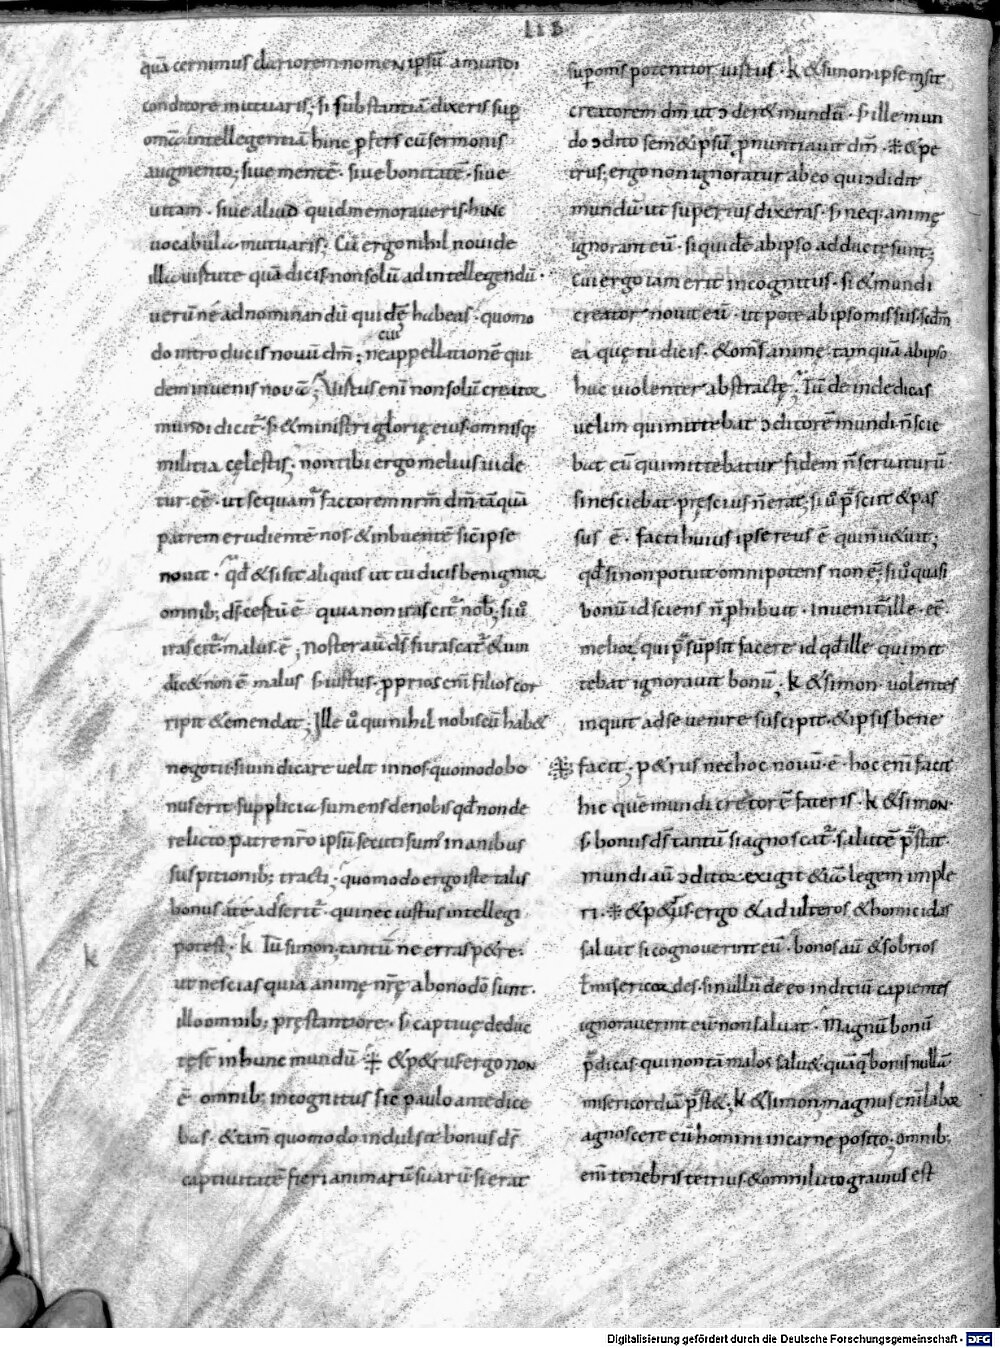 118
quā cernimus clariorem nomen ipsū a mundi
conditore mutuaris; si substantiā dixeris sup
omēm intellegentiā hinc pfers eū sermonis
augmento; siue mentē · siue bonitatē · siue
uitam · siue aliud quid memoraueris hinc
uocabula mutuaris; Cū ergo nihil noui de
illa uirtute quā dicis non solū ad intellegendū ·
uerū nē ad nominandū qui dē habeas · quomo
do introducis nouū dm̄; nē appellationē qui
cui
dem inuenis nouā; Virtus enī non solū creator
mundi dicit̄ · s; & ministri glorię eius omnisq;
militia cęlestis; non tibi ergo melius uide
tur · eē · ut sequam̄ factorem nrm̄ dm̄ tāquā
patrem erudientē nos · & inbuentē sic̄ ipse
nouit · qd̄ & si sit aliquis ut tu dicis benignior
omnib; d̄s cęstū ē quia non irascit̄ nob̄; si ū
irascit̄ · malus · ē; Noster aū d̄s si irascat̄ & uin
dic& non ē malus s; iustus · pprios enī filios cor
ripit & emendat; Ille ū qui nihil nobiscū hab&
negotii · si uindicare uelit in nos · quomodo bo
nus erit supplicia sumens de nobis qd̄ non de
relicto patre nr̄o ipsū secuti sum̄ inanibus
suspitionib; tracti · quomodo ergo iste talis
bonus a te adserit̄ · qui nec iustus intellegi
k
potest · k Tū simon; tantū ne erras p&re ·
ut nescias quia animę nr̄ę a bono dō sunt ·
illo omnib; pręstantiore · s; captiuę deduc
tęs̄ in hunc mundū · & p&rus ergo non
ē omnib; incognitus sic̄ paulo ante dice
bas · & tam̄ quomodo indulsit bonus d̄s
captiuitatē fieri animarū suarū · si erat
supomīs potentior uirtus · k & simon ipse misit
creatorem dm̄ ut ɔder& mundū · s; ille mun
do ɔdito sem&ipsū pnuntiauit dm̄ · & pe
trus; ergo non ignoratur ab eo qui ɔdidit
mundū ut superius dixeras · s; neq; animę
ignorant eū · si quidē ab ipso adductę sunt;
Cui ergo iam erit incognitus · si & mundi
creator nouit eū · ut pote ab ipso missus · scd̄m
ea quę tu dicis · & om̄s animę tamquā ab ipso
huc uiolenter abstractę; Tū deinde dicas
uelim qui mittebat ɔditorē mundi n̄ scie
bat eū qui mittebatur fidem n̄ seruiturū
si nesciebat · pręscius n̄ erat; si ū p̄sciit & pas
sus ē · facti huius ipse reus ē qui n̄ uetuit;
qd̄ si non potuit omnipotens non ē; si ū quasi
bonū id sciens n̄ phibuit · inuenit̄ ille · eē ·
melior qui p̄sūpsit facere id qd̄ ille qui mit
tebat ignorauit bonū; k & simon · uolentes
inquit ad se uenire suscipit · & ipsis bene
facit; p&rus nec hoc nouū · ē · hoc enī facit
hic quē mundi cretorē fateris · k & simon ·
s; bonus d̄s tantū si agnoscat̄ · salutē p̄stat ·
mundi aū ɔditor exigit & iā legem imple
ri · & p&rus · ergo & adulteros & homicidas
saluat si cognouerint eū · bonos aū & sobrios
t̄ misericordes · si nullū de eo indiciū capientes
ignorauerint eū non saluat · Magnū bonū
p̄dicas · qui non tā malos salu& · quāq̄ bonis nullā
misericordiā p̄st&; k & simon; magnus enī labor
agnoscere eū homini in carne posito; omnib;
enī tenebris tetrius & omni luto grauius est
Digitalisierung gefördert durch die Deutsche Forschungsgemeinschaft - DFG